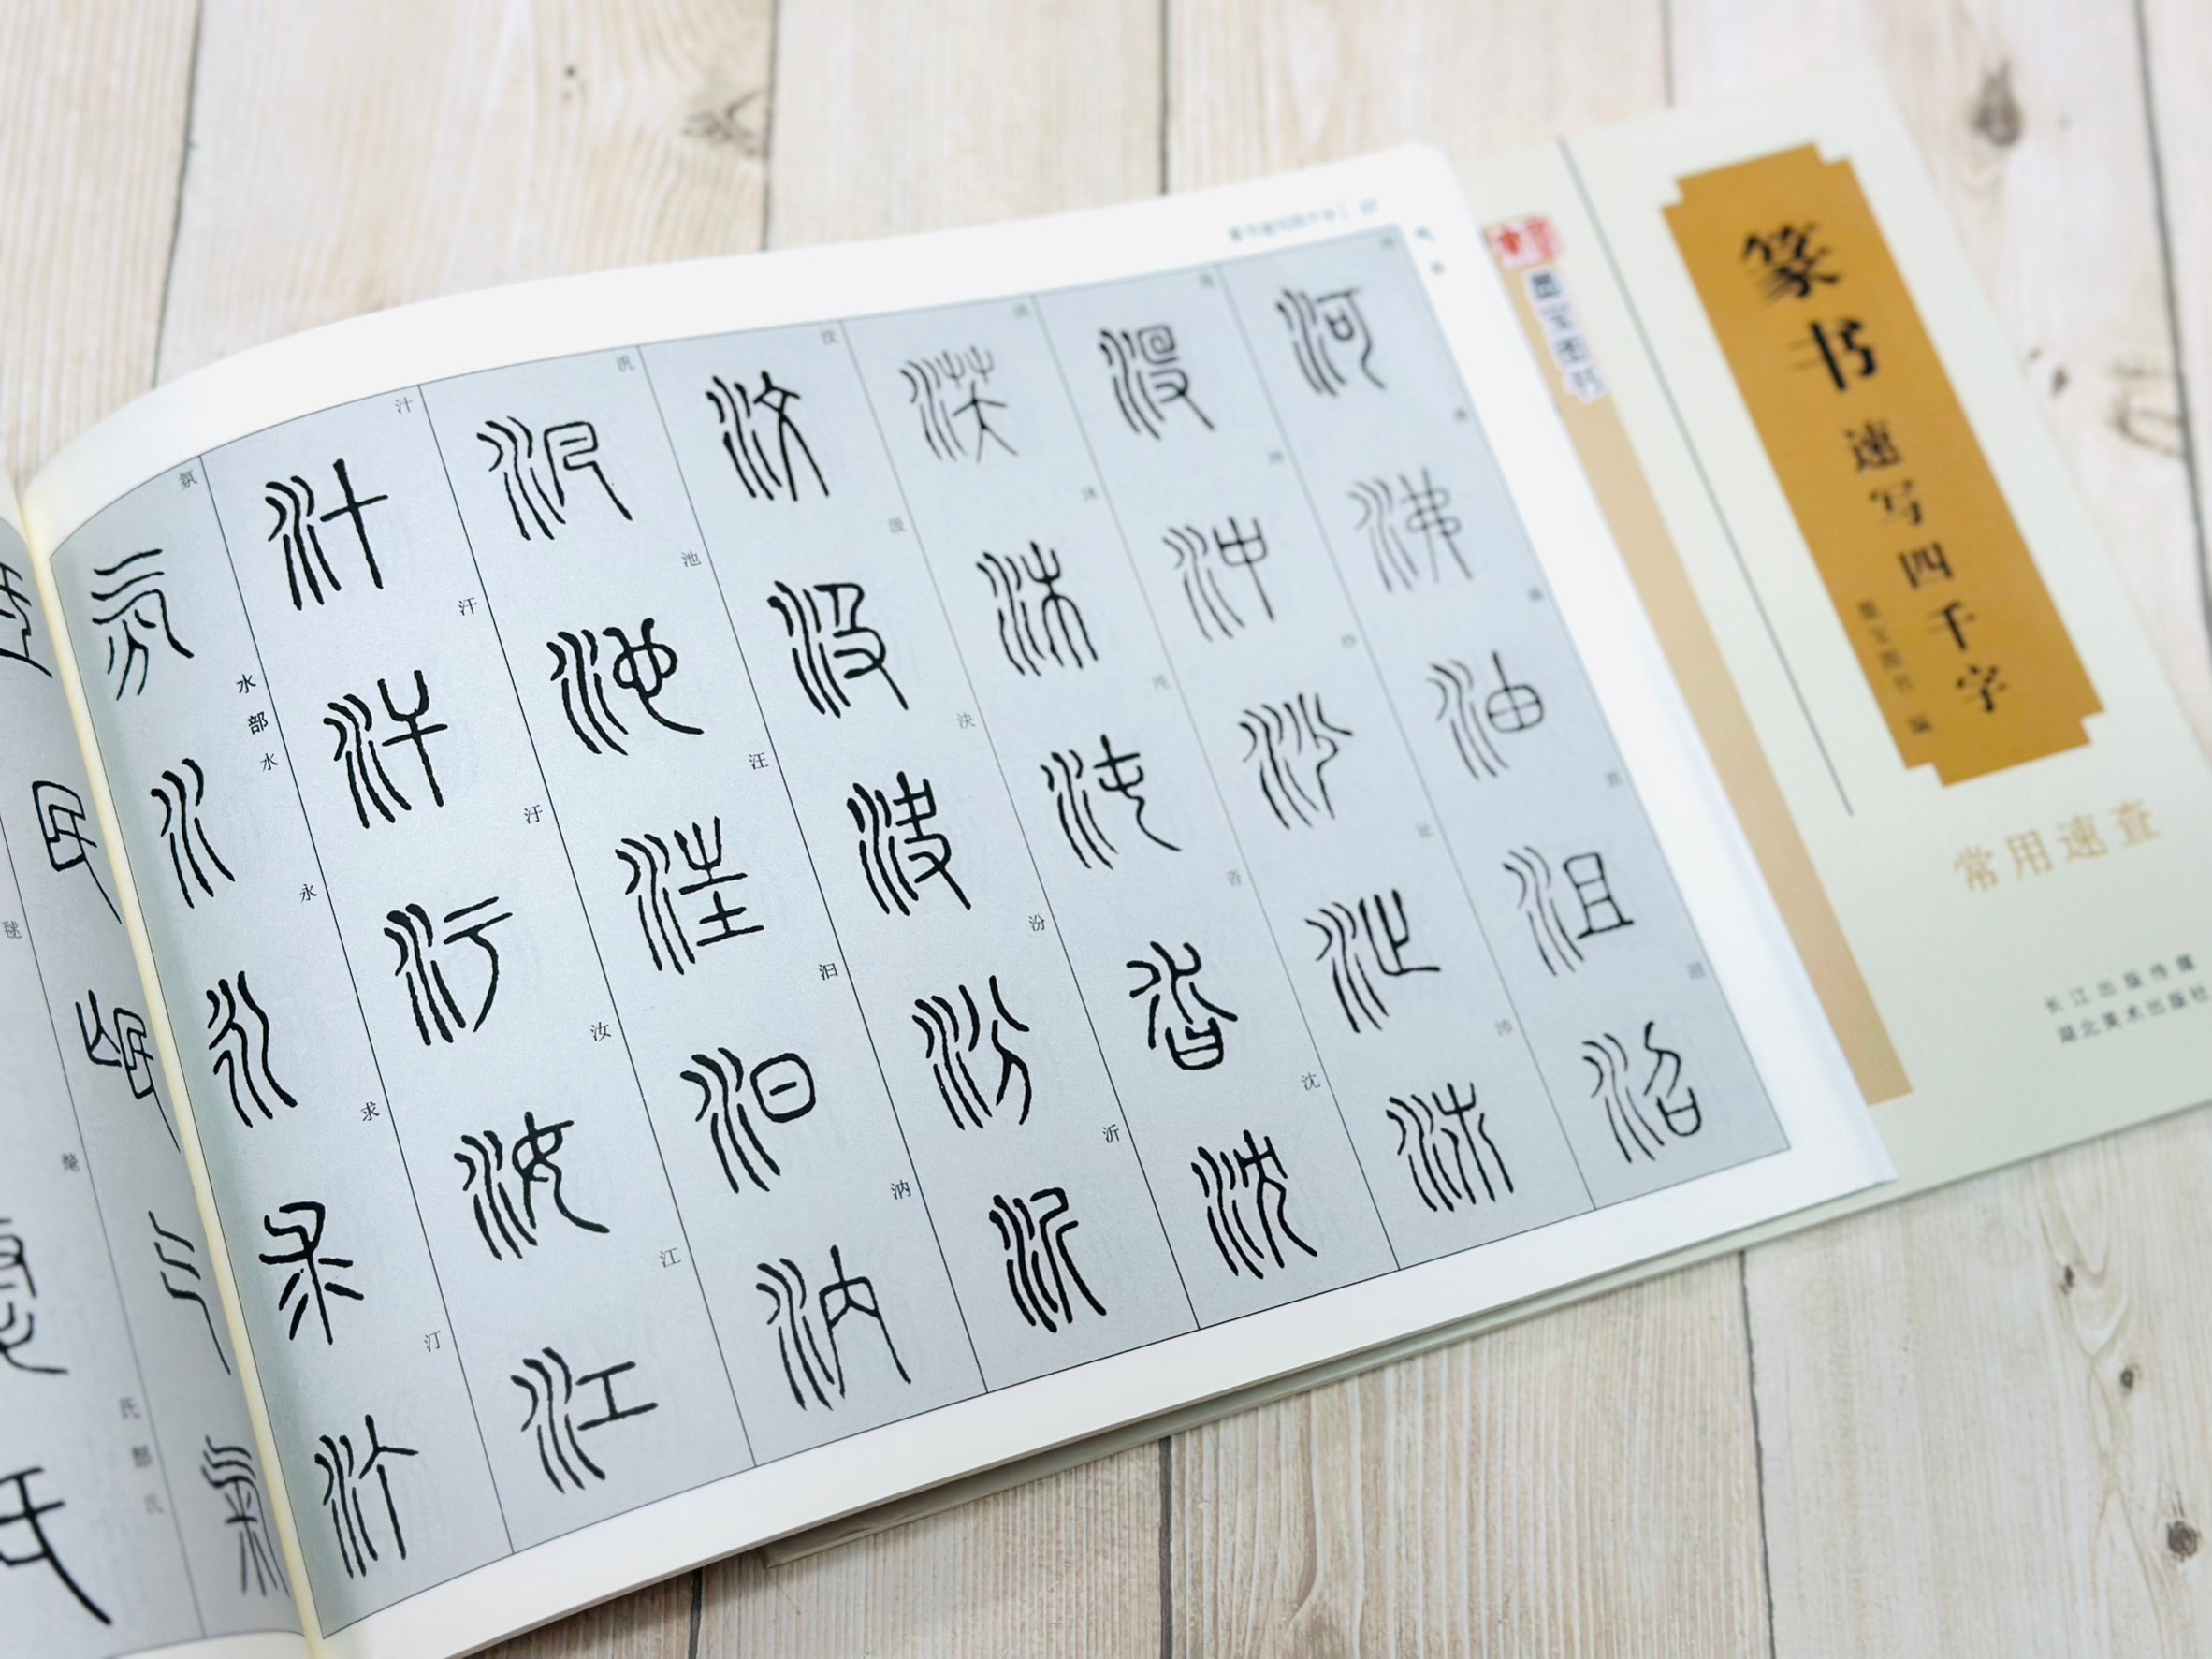 毬
氏部
氏
民
氓
气
氣
氛
水部
水
永
求
汀
汁
汗
汙
汝
江
汎
池
汪
汩
汭
汶
汲
決
汾
沂
沃
沐
沌
沓
沈
没
沖
沙
沚
沛
河
沸
油
沮
沼
篆书
速写四千字
墨文图书 编
常用速查
长江出版传媒
湖北美术出版社